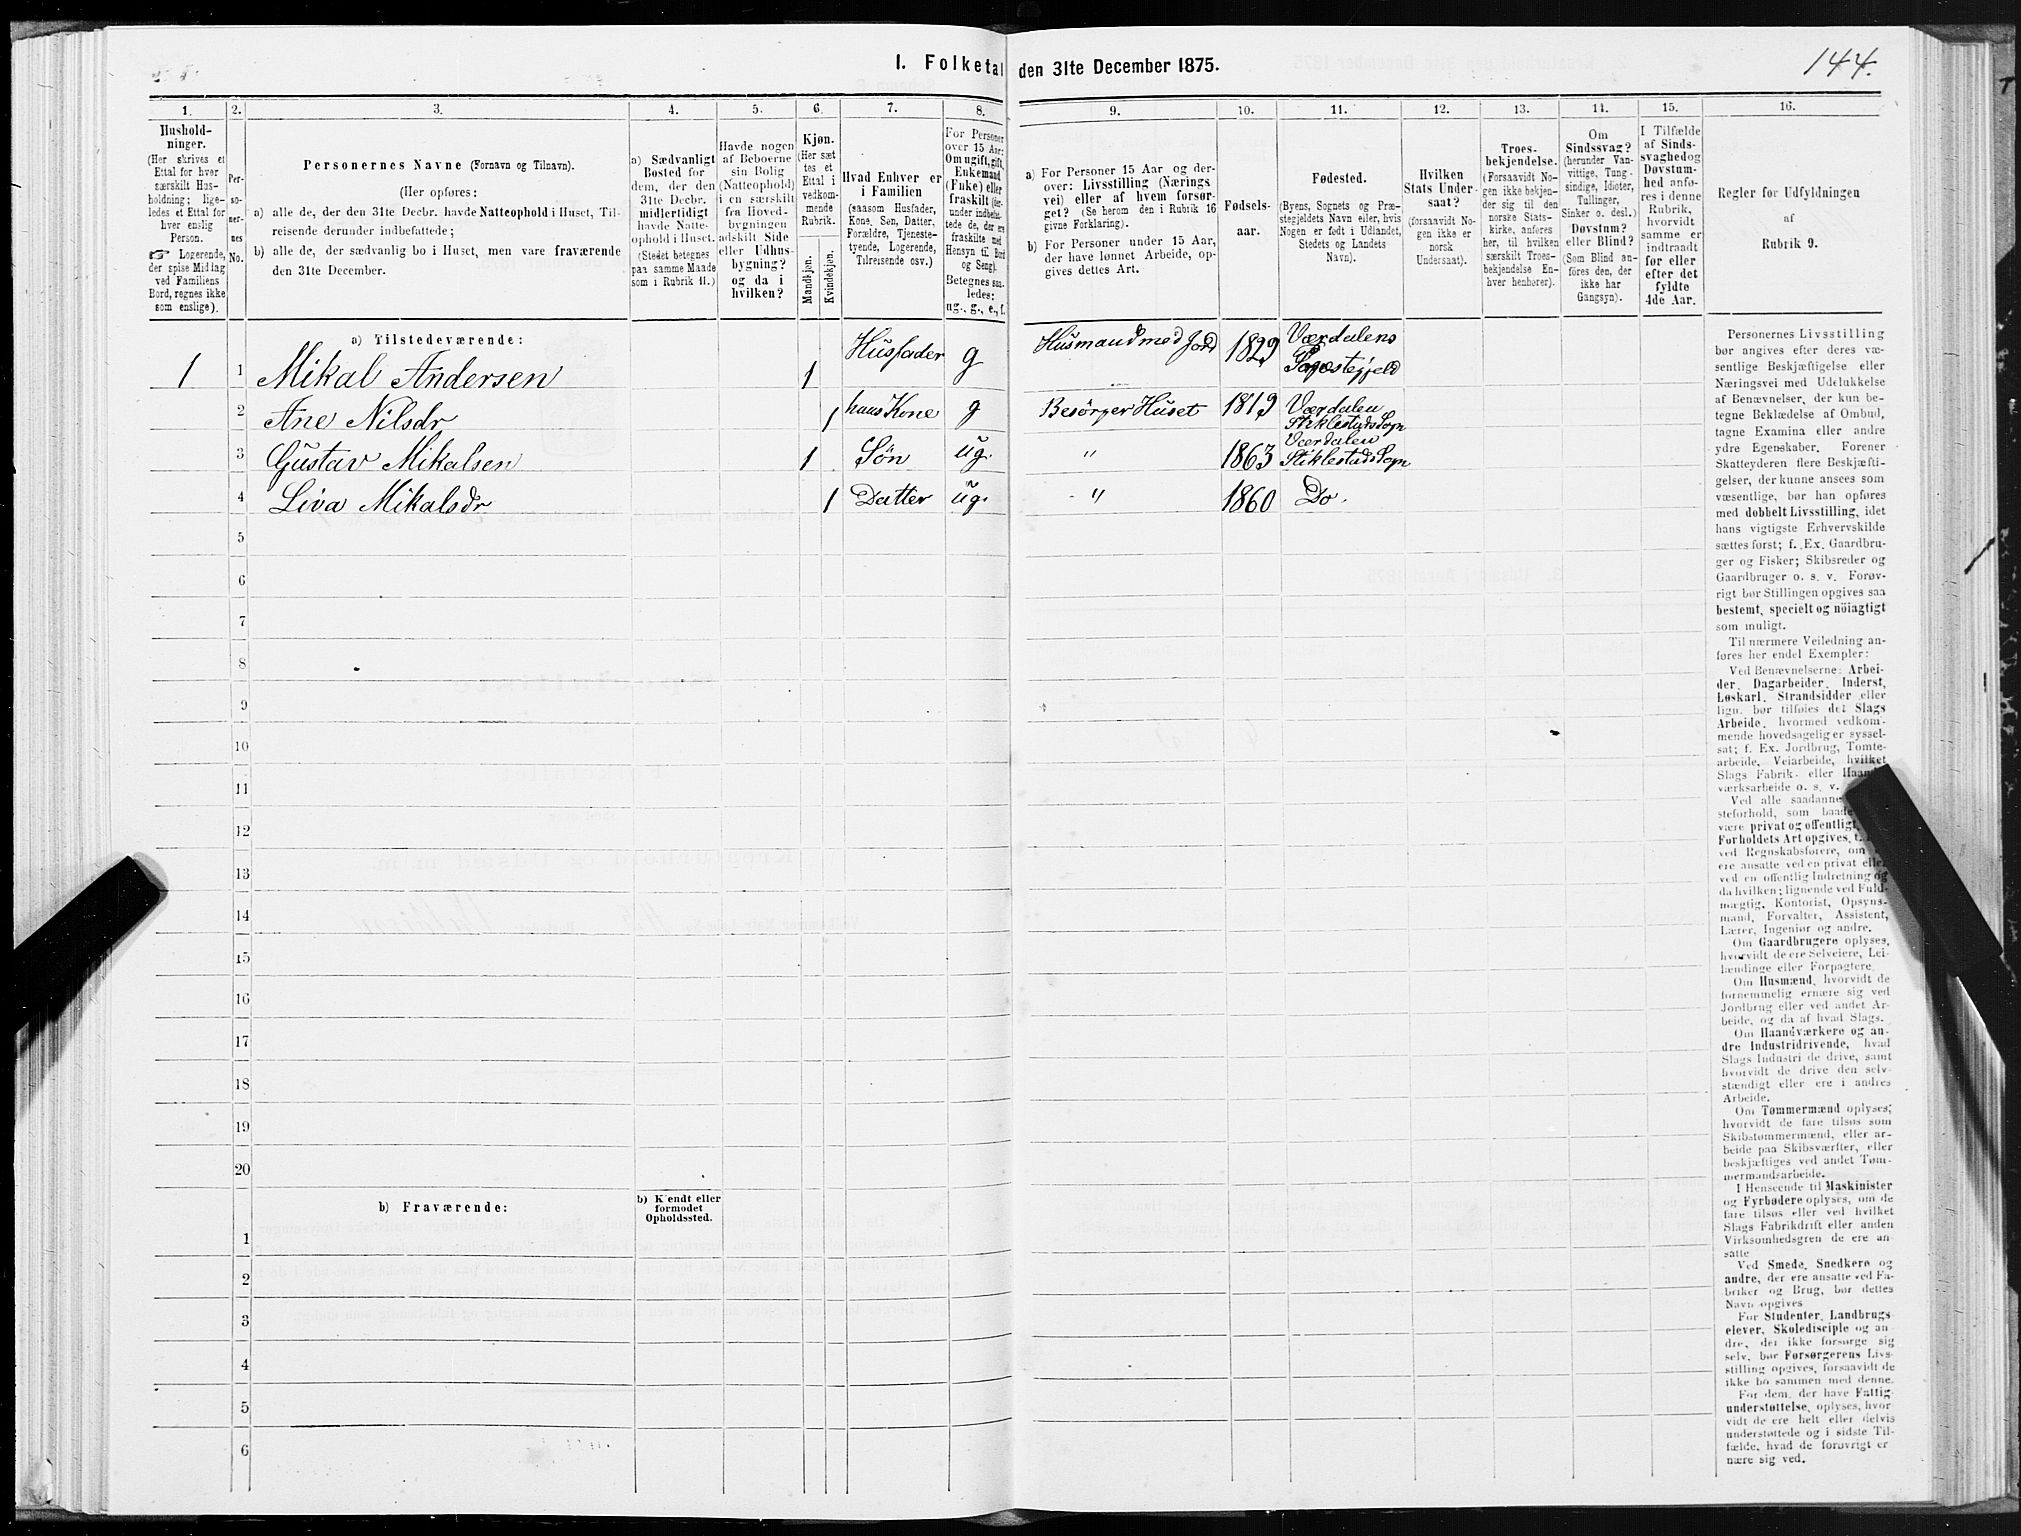 I. Folketal den 31te December 1875.
144.
1. 2. 3. 4. 5. 6. 7. 8. 9. 10. 11. 12. 13. 14. 15. 16.
Hushold-
ninger.
(Her skrives et
Ettal for hver
særskilt Hus-
holdning; lige-
ledes et Ettal for
hver enslig
Person.
☞ Logerende,
der spise Middag
ved Familiens
Bord, regnes ikke
som enslige).
Per-
so-
ner-
nes
No.
Personernes Navne (Fornavn og Tilnavn).
(Her opføres:
a) alle de, der den 31te Decbr. havde Natteophold i Huset, Til-
reisende derunder indbefattede;
b) alle de, der sædvanlig bo i Huset, men vare fraværende
den 31te December.
a) Sædvanligt
Bosted for
dem, der den
31te Decbr.
midlertidigt
havde Natte-
ophold i Huset.
(Stedet betegnes
paa samme Maade
som i Rubrik 11.)
Havde nogen
af Beboerne
sin Bolig
(Natteophold)
i en særskilt
fra Hoved-
bygningen
adskilt Side
eller Udhus-
bygning?
og da i
hvilken?
Kjøn.
(Her sæt
tes et
Ettal i
vedkom-
mende
Rubrik.
Mandkjøn.
Kvindekjøn.
Hvad Enhver er
i Familien
(saasom Husfader,
Kone, Søn, Datter,
Forældre, Tjeneste-
tyende, Logerende,
Tilreisende osv.)
For Personer
over 15 Aar:
Om ugift, gift,
Enkemand
(Enke) eller
fraskilt (der-
under indbefat-
tede de, der ere
fraskilte med
Hensyn til Bord
og Seng).
Betegnes saa-
ledes:
ug., g., e., f.
a) For Personer 15 Aar og der-
over: Livsstilling (Nærings
vei) eller af hvem forsør-
get? (Se herom den i Rubrik 16
givne Forklaring).
b) For Personer under 15 Aar,
der have lønnet Arbeide, op-
gives dettes Art.
Fødsels-
aar.
Fødested.
(Byens, Sognets og Præ-
stegjeldets Navn eller, hvis
Nogen er født i Udlandet,
Stedets og Landets
Navn).
Hvilken
Stats Under-
saat?
(forsaavidt No-
gen ikke er
norsk
Undersaat).
Troes-
bekjendelse.
(Forsaavidt No
gen ikke bekjen-
der sig til den
norske Stats-
kirke, anføres
her, til hvilken
særskilt Troes-
bekjendelse En-
hver henhører).
Om
Sindssvag?
(herunder Van-
vittige, Tung-
sindige, Idioter,
Tullinger,
Sinker o. desl.)
Døvstum?
eller Blind?
(Som Blind an-
føres den, der
ikke har
Gangsyn).
I Tilfælde
af Sinds-
svaghed og
Døvstum-
hed anfø-
res i denne
Rubrik,
hvorvidt
samme er
indtraadt
før eller
efter det
fyldte
4de Aar.
Regler for Udfyldningen
af
Rubrik 9.
a) Tilstedeværende:
1 1 Mikal Andersen 1 Husfader g Husmand med Jord 1829 Værdalens
Præstegjeld
2 Ane Nilsdr 1 hans Kone g Besörger Huset 1819 Værdalen
Stiklestads Sogn
3 Gustav Mikalsen 1 Søn ug. " 1863 Værdalen
Stiklestads Sogn
4 Liva Mikalsdr 1 Datter ug. " 1860 Do.
5
6
7
8
9
10
11
12
13
14
15
16
17
18
19
20
b) Fraværende:
b) Kjendt eller
formodet
Opholdssted.
1
2
3
4
5
6
Personernes Livsstilling
bør angives efter deres væ-
sentlige Beskjæftigelse eller
Næringsvei med Udelukkelse
af Benævnelser, der kun be-
tegne Beklædelse af Ombud,
tagne Examina eller andre
ydre Egenskaber. Forener
Skatteyderen flere Beskjæfti-
gelser, der kunne ansees som
væsentlige, bør han opføres
med dobbelt Livsstilling, idet
hans vigtigste Erhvervskilde
sættes først; f. Ex. Gaardbru-
ger og Fisker; Skibsreder og
Gaardbruger o. s. v. Forøv-
rigt bør Stillingen opgives saa
bestemt, specielt og nöiagtigt
som muligt.
Til nærmere Veiledning an-
føres her endel Exempler:
Ved Benævnelserne: Arbei-
der, Dagarbeider, Inderst,
Løskarl, Strandsidder eller
lign. bør tilføies det Slags
Arbeide, hvormed vedkom-
mende hovedsagelig er syssel-
sat; f. Ex. Jordbrug, Tomte-
arbeide, Veiarbeide, hvilket
Slags Fabrik- eller Haand-
værksarbeide o. s. v.
Ved alle saadanne
steforhold, som baade
være privat og offentligt,
Forholdets Art opgives, t.
ved Regnskabsførere, om
ere ansatte ved en privat eller
ved en offentlig Indretning og
da hvilken; lignende ved Fuld-
mægtig, Kontorist, Opsyns-
mand, Forvalter, Assistent,
Lærer, Ingeniør og andre.
Om Gaardbrugere oplyses,
hvorvidt de ere Selveiere, Lei-
lændinge eller Forpagtere.
Om Husmænd, hvorvidt de
fornemmelig ernære sig ved
Jordbrug eller ved andet Ar-
beide, og da af hvad Slags.
Om Haandværkere og an-
dre Industridrivende, hvad
Slags Industri de drive, samt
hvorvidt de drive den selv-
stændigt eller ere i andres
Arbeide.
Om Tømmermænd oplyses;
hvorvidt de fare tilsøs som
Skibstømmermænd, eller ar-
beide paa Skibsværfter, eller
beskjæftiges ved andet Tøm-
mermandsarbeide.
I Henseende til Maskinister
og Fyrbødere oplyses, om de
fare tilsøs eller ved hvilket
Slags Fabrikdrift eller anden
Virksomhedsgren de ere an-
satte
Ved Smede, Snedkere og
andre, der ere ansatte ved Fa-
briker og Brug, bør dettes
Navn opgives
For Studenter, Landbrugs-
elever, Skoledisciple og an-
dre, der ikke forsørge sig
selv, bør Forsørgerens Livs-
stilling opgives, forsaavidt de
ikke bo sammen med denne.
For dem, der have Fattig-
understøttelse, oplyses, hvor-
vidt de ere helt eller delvis
understøttede og i sidste Til-
fælde, hvad de forøvrigt er
nære sig ved.